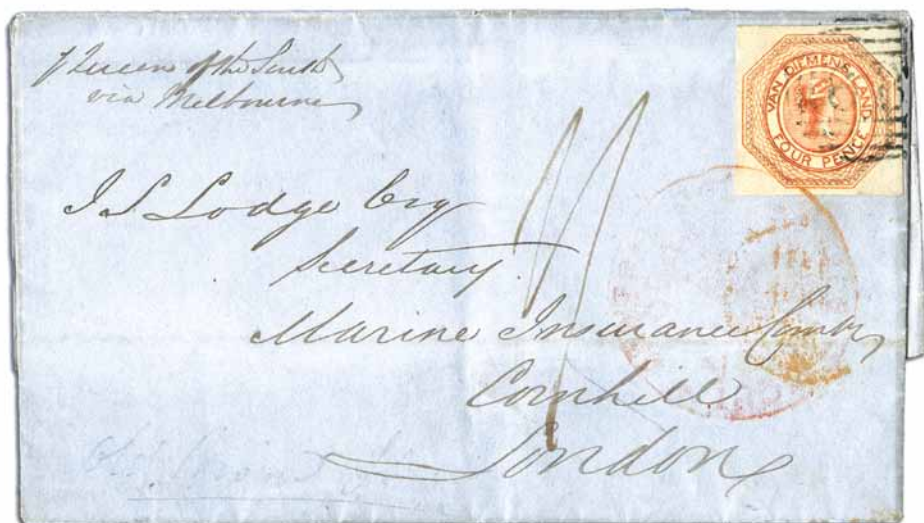 p Queen of the South
via Melbourne
VAN DIEMENS LAND
FOUR PENCE
J S Lodge Esq
Secretary
Marine Insurance Compy
Cornhill
London